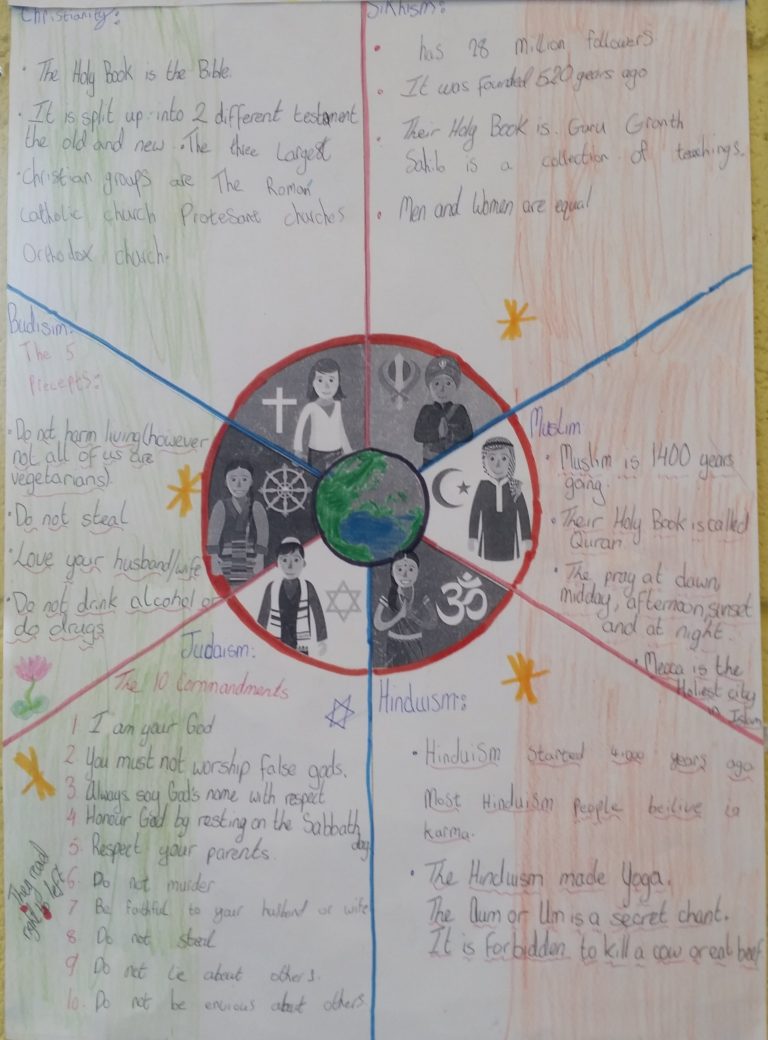 Christianity:
• The Holy Book is the Bible.
• It is split up into 2 different testament
the old and new • The three Largest
• Christian groups are The Roman
catholic church Protesant churches
Orthodox church.
Sikhism:
• has 28 Million followers
• It was founded 520 years ago
• Their Holy Book is Guru Granth
Sahib is a collection of teachings.
• Men and Women are equal
Budisim:
The 5
Precepts:
• Do not harm living (however
not all of us are
vegetarians).
• Do not steal
• Love your husband/wife
• Do not drink alcohol or
do drugs
Muslim
• Muslim is 1400 years
going.
• Their Holy Book is called
Quran
• The pray at dawn,
midday, afternoon, sunset
and at night.
• Mecca is the
Holiest city
in Islam
Judaism:
The 10 Commandments
1 I am your God
2 You must not worship false gods.
3. Always say God's name with respect
4 Honour God by resting on the Sabbath
day
5. Respect your parents.
6. Do not murder
7 Be faithful to your husband or wife
8. Do not steal
9 Do not lie about others.
10. Do not be envious about others
They read
right to left
Hinduism:
• Hinduism started 4,000 years ago
Most Hinduism people beilive in
karma.
• The Hinduism made Yoga.
The Aum or Um is a secret chant.
It is forbidden to kill a cow or eat beef
ॐ